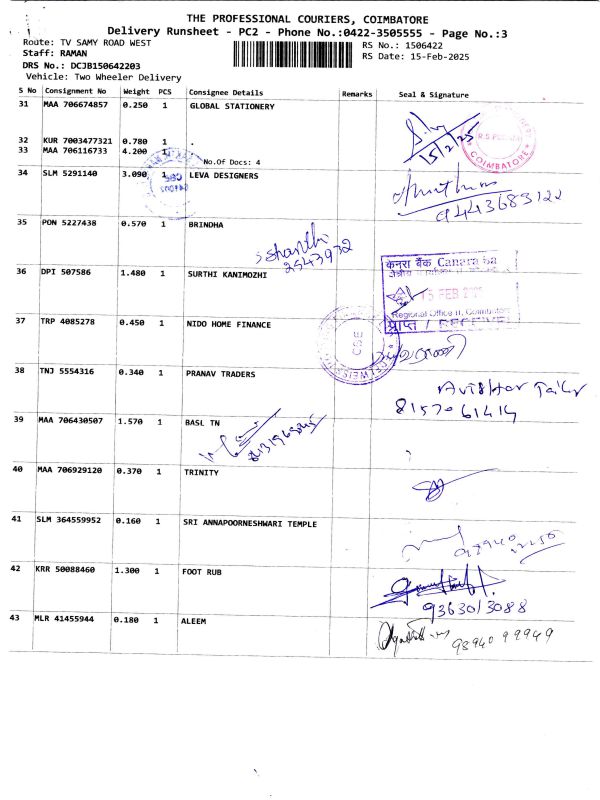 THE PROFESSIONAL COURIERS, COIMBATORE
Delivery Runsheet - PC2 - Phone No.:0422-3505555 - Page No.:3
Route: TV SAMY ROAD WEST
RS No.: 1506422
Staff: RAMAN
RS Date: 15-Feb-2025
DRS No.: DCJB150642203
Vehicle: Two Wheeler Delivery
S No Consignment No Weight PCS Consignee Details Remarks Seal & Signature
31 MAA 706674857 0.250 1 GLOBAL STATIONERY
15/2/25
COIMBATORE
32 KUR 7003477321 0.780 1 .
33 MAA 706116733 4.200 1 .
No.Of Docs: 4
34 SLM 5291140 3.090 1 LEVA DESIGNERS
9443683122
35 PON 5227438 0.570 1 BRINDHA
2543932
36 DPI 507586 1.480 1 SURTHI KANIMOZHI
केनरा बैंक Canara ba
15 FEB
Regional Office II, Coimbatore
प्राप्त / RECEIVED
37 TRP 4085278 0.450 1 NIDO HOME FINANCE
CSE
38 TNJ 5554316 0.340 1 PRANAV TRADERS
8157061414
39 MAA 706430507 1.570 1 BASL TN
40 MAA 706929120 0.370 1 TRINITY
41 SLM 364559952 0.160 1 SRI ANNAPOORNESHWARI TEMPLE
42 KRR 50088460 1.300 1 FOOT RUB
9363013088
43 MLR 41455944 0.180 1 ALEEM
9894099949